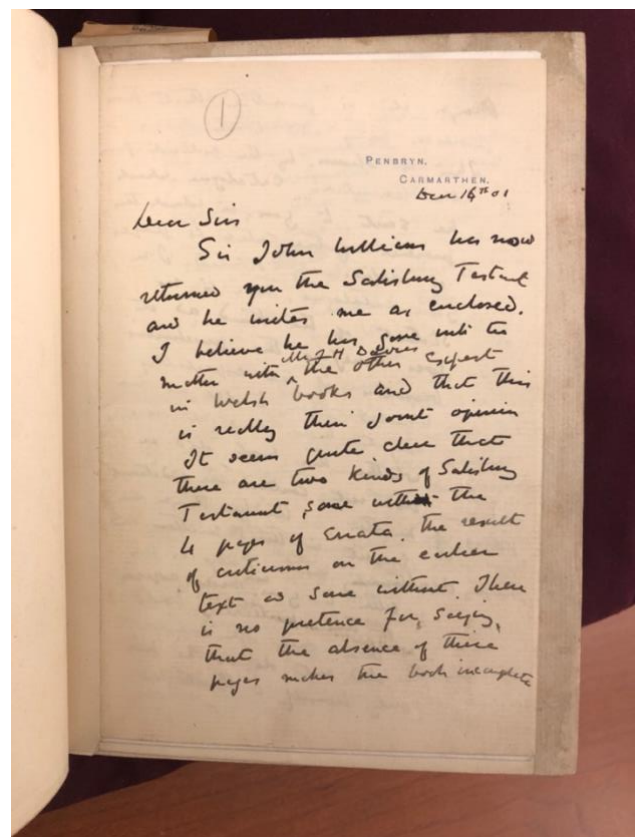 1
PENBRYN.
CARMARTHEN.
Dec 16th 01
Dear Sir
Sir John Williams has now
returned you the Salisbury Testamt
and he writes me as enclosed.
I believe he has gone into the
Mr J H Davies
matter with ^ the other expert
in Welsh books and that this
is really their joint opinion
It seems quite clear that
there are two kinds of Salisbury
Testament, some with the
4 pages of Errata, the result
of criticisms on the earlier
text & some without. There
is no pretence for saying,
that the absence of these
pages makes the book incomplete